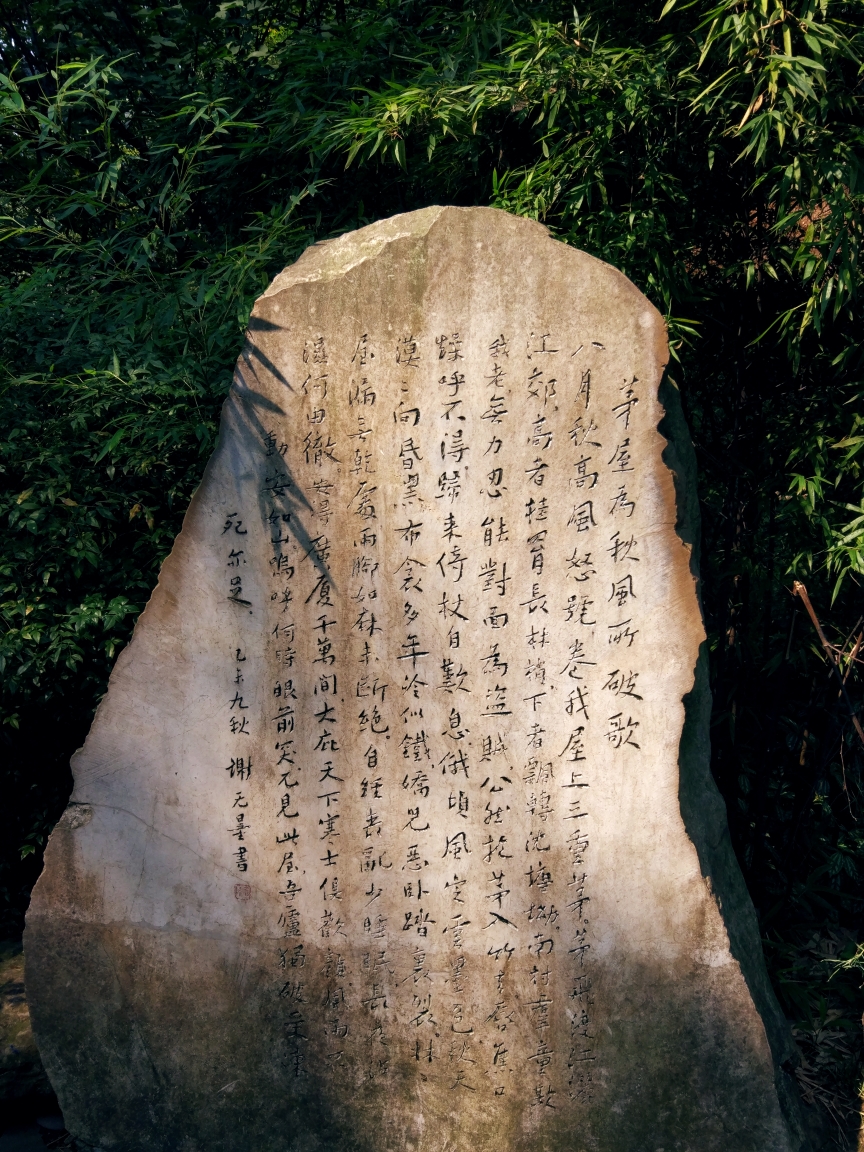 茅屋為秋風所破歌
八月秋高風怒號卷我屋上三重茅茅飛渡江灑
江郊高者挂罥長林梢下者飄轉沈塘坳南村羣童欺
我老無力忍能對面為盜賊公然抱茅入竹去唇焦口
燥呼不得歸来倚杖自歎息俄頃風定雲墨色秋天
漠〻向昏黑布衾多年冷似鐵嬌兒惡卧踏裏裂牀〻
屋漏無乾處雨脚如麻未斷絶自經喪亂少睡眠長夜沾
濕何由徹安得廣厦千萬間大庇天下寒士俱歡顔風雨不
動安如山嗚呼何時眼前突兀見此屋吾廬獨破受凍
死亦足 乙未九秋 謝无量書